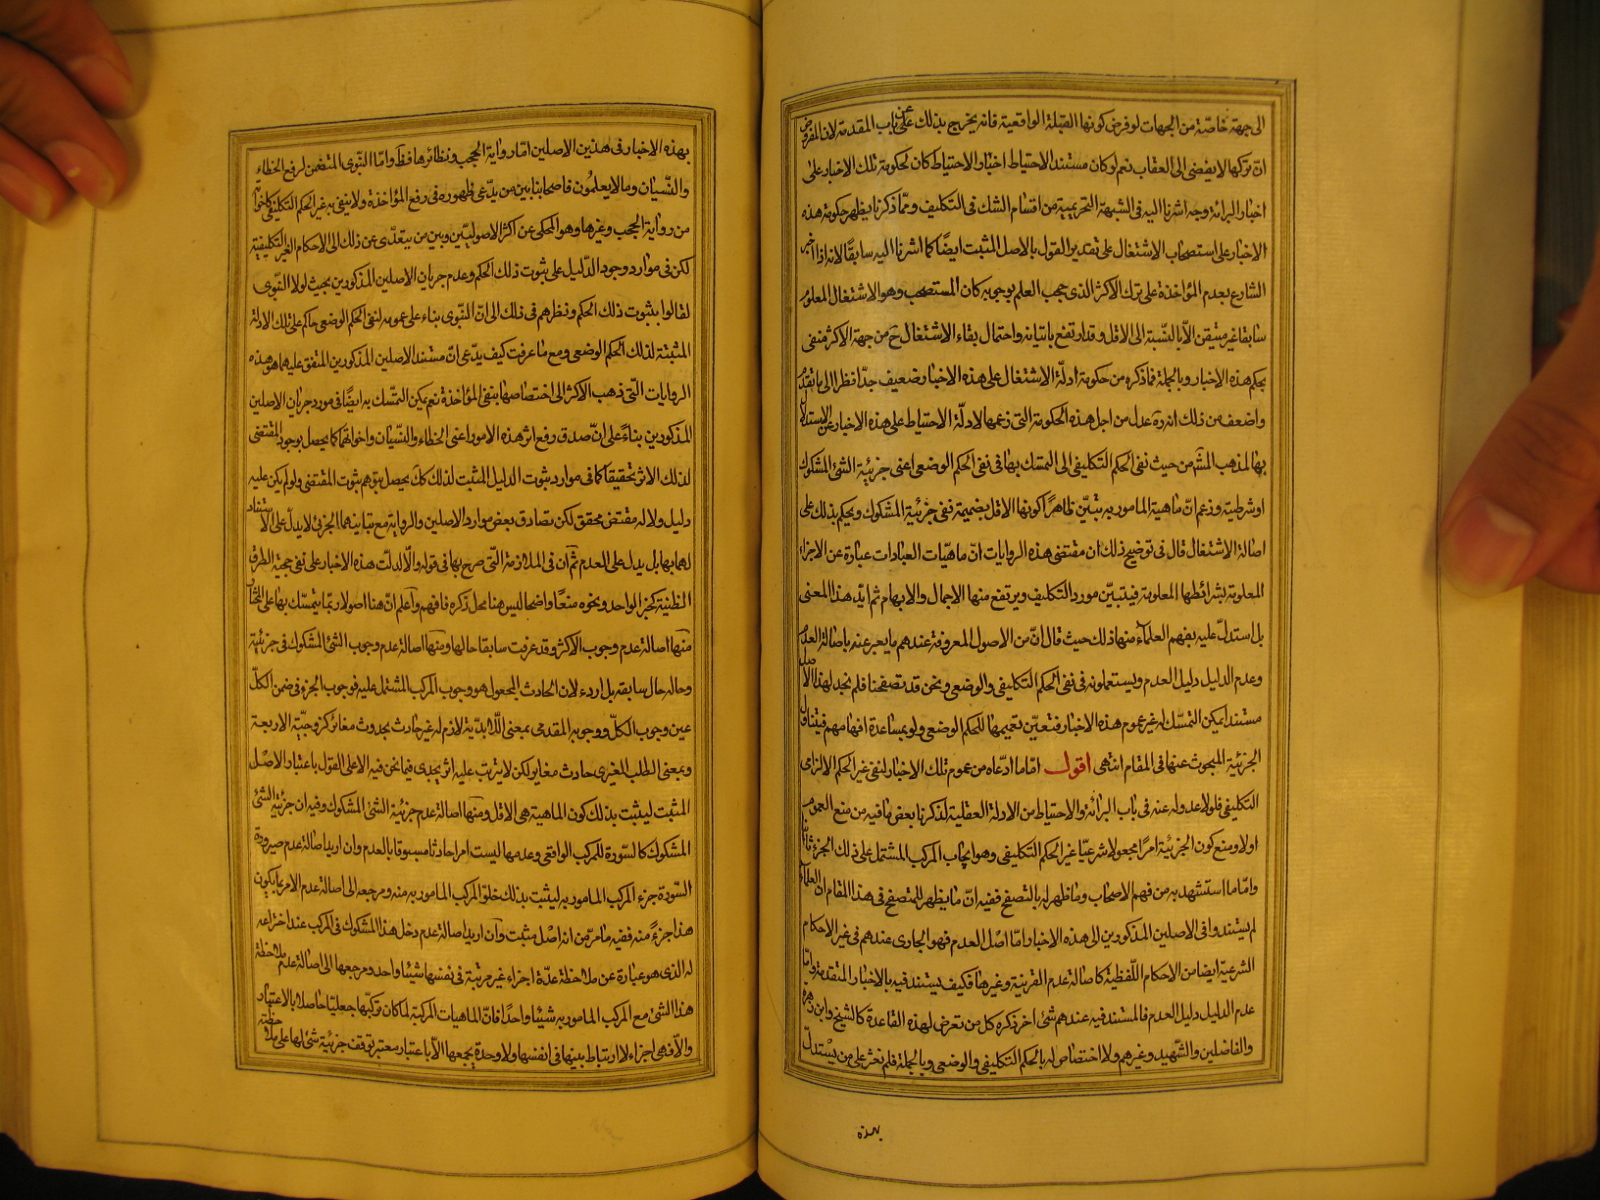 الى جهة خاصّة من الجهات لو فرض كونها القبلة الواقعية فانه يخرج بذلك عن باب المقدمة لان المفروض
انّ تركها لا يفضى الى العقاب نعم لو كان مستند الاحتياط اخبار الاحتياط كان لحكومة تلك الاخبار على
اخبار البرائة وجه اشرنا اليه فى الشبهة التحريمية من اقسام الشك فى التكليف وممّا ذكرنا يظهر حكومة هذه
الاخبار على استصحاب الاشتغال على تقدير القول بالاصل المثبت ايضًا كما اشرنا اليه سابقًا لانه اذا اخبر
الشارع بعدم المؤاخذة على ترك الاكثر الذى حجب العلم بوجوبه كان المستصحب وهو الاشتغال المعلوم
سابقا غير متيقن الّا بالنّسبة الى الاقل وقد ارتفع باتيانه واحتمال بقاء الاشتغال ح من جهة الاكثر منفى
بحكم هذه الاخبار وبالجملة فما ذكره من حكومة ادلّة الاشتغال على هذه الاخبار ضعيف جدّا نظرا الى ما تقدم
واضعف من ذلك انه ره عدل من اجل هذه الحكومة التى زعمها لادلّة الاحتياط على هذه الاخبار عن الاستدلال
بها لمذهب المشهور من حيث نفى الحكم التكليفى الى التمسك بها فى نفى الحكم الوضعى اعنى جزئية الشئ المشكوك
او شرطيته وزعم انّ ماهية المامور به تبيّن ظاهرًا كونها الاقل بضميمة نفى جزئية المشكوك ويحكم بذلك على
اصالة الاشتغال قال فى توضيح ذلك ان مقتضى هذه الروايات انّ ماهيّات العبادات عبارة عن الاجزاء
المعلومة بشرائطها المعلومة فيتبيّن مورد التكليف ويرتفع منها الاجمال والابهام ثم ايّد هذا المعنى
بل استدلّ عليه بفهم العلماء منها ذلك حيث قال انّ من الاصول المعروفة عندهم ما يعبر عنه باصالة العدم
وعدم الدليل دليل العدم ويستعملونه فى نفى الحكم التكليفى والوضعى ونحن قد تصفحنا فلم نجد لهذا الاصل
مستندا يمكن التمسّك له غير عموم هذه الاخبار فتعيّن تعميمها للحكم الوضعى ولو بمساعدة افهامهم فيتناول
الجزئية المبحوث عنها فى المقام انتهى اقول امّا ما ادّعاه من عموم تلك الاخبار لنفى غير الحكم الالزامى
التكليفى فلولا عدوله عنه فى باب البرائة والاحتياط من الادلة العقلية لذكرنا بعض ما فيه من منع العموم
اولا ومنع كون الجزئية امرًا مجعولا شرعيّا غير الحكم التكليفى وهو ايجاب المركب المشتمل على ذلك الجزء ثانيا
وامّا ما استشهد به من فهم الاصحاب وما ظهر له بالتصفح ففيه انّ ما يظهر للمتصفح فى هذا المقام ان العلماء
لم يستندوا فى الاصلين المذكورين الى هذه الاخبار امّا اصل العدم فهو الجارى عندهم فى غير الاحكام
الشرعيّة ايضا من الاحكام اللّفظية كاصالة عدم القرينة وغيرها فكيف يستند فيه بالاخبار المتقدمة وامّا
عدم الدليل دليل العدم فالمستند فيه عندهم شئ اخر ذكره كل من تعرض لهذه القاعدة كالشيخ وابن زهره
والفاضلين والشّهيد وغيرهم ولا اختصاص له بالحكم التكليفى والوضعى وبالجملة فلم نعثر على من يستدلّ
بهذه
بهذه الاخبار فى هذين الاصلين امّا رواية الحجب ونظائرها فظ وامّا النّبوى المتضمن لرفع الخطاء
والنّسيان وما لا يعلمون فاصحابنا بين من يدّعى ظهوره فى رفع المؤاخذة ولا ينفى به غير الحكم التكليفى كاخواته
من رواية الحجب وغيرها وهو المحكى عن اكثر الاصوليّين وبين من يتعدّى عن ذلك الى الاحكام الغير التكليفية
لكن فى موارد وجود الدّليل على ثبوت ذلك الحكم وعدم جريان الاصلين المذكورين بحيث لولا النّبوى
لقالوا بثبوت ذلك الحكم ونظرهم فى ذلك الى انّ النّبوى بناء على عمومه لنفى الحكم الوضعى حاكم على تلك الادلة
المثبتة لذلك الحكم الوضعى ومع ما عرفت كيف يدّعى انّ مستند الاصلين المذكورين المتفق عليهما هو هذه
الروايات التّى ذهب الاكثر الى اختصاصها بنفى المؤاخذة نعم يمكن التمسّك به ايضًا فى مورد جريان الاصلين
المذكورين بناءً على انّ صدق رفع اثر هذه الامور اعنى الخطاء والنّسيان واخواتهما كما يحصل بوجود المقتضى
لذلك الاثر تحقيقًا كما فى موارد ثبوت الدليل المثبت لذلك كك يحصل بتوهم ثبوت المقتضى ولو لم يكن عليه
دليل ولا له مقتض محقق لكن تصادق بعض موارد الاصلين والرواية مع تباينهما الجزئى لا يدلّ على الاستناد
لهما بها بل يدل على العدم ثمّ انّ فى الملازمة التّى صرح بها فى قوله والّا لدلت هذه الاخبار على نفى حجية الطرق
الظنّية كخبر الواحد ونحوه منعًا واضحا ليس هنا محل ذكره فافهم واعلم انّ هنا اصولا ربّما يتمسّك بها على المختار
منها اصالة عدم وجوب الاكثر وقد عرفت سابقا حالها ومنها اصالة عدم وجوب الشئ المشكوك فى جزئيّته
وحاله حال سابقه بل اردء لان الحادث المجعول هو وجوب المركب المشتمل عليه فوجوب الجزء فى ضمن الكلّ
عين وجوب الكلّ ووجوبه المقدمى بمعنى اللّابدّية لازم له غير حادث بحدوث مغائر كزوجيّة الاربعة
وبمعنى الطلب الغيرى حادث مغاير لكن لا يترتب عليه اثر يجدى فيما نحن فيه الا على القول باعتبار الاصل
المثبت ليثبت بذلك كون الماهية هى الاقل ومنها اصالة عدم جزئية الشئ المشكوك وفيه ان جزئية الشئ
المشكوك كالسّورة للمركب الواقعى وعدمها ليست امرا حادثا مسبوقا بالعدم وان اريد اصالة عدم صيرورة
السّورة جزء المركب المامور به ليثبت بذلك خلوّ المركب المامور به منه ومرجعه الى اصالة عدم الامر بما يكون
هذا جزءً منه ففيه ما مرّ من انه اصل مثبت وان اريد اصالة عدم دخل هذا المشكوك فى المركب عند اختراعه
له الذى هو عبارة عن ملاحظة عدّة اجزاء غير مرتبة فى نفسها شيئا واحد ومرجعها الى اصالة عدم ملاحظة
هذا الشئ مع المركب المامور به شيئا واحدًا فانّ الماهيات المركبة لما كان تركبّها جعليّا حاصلا بالاعتبار
والّا فهى اجزاء لا ارتباط بينها فى انفسها ولا وحدة يجمعها الّا باعتبار معتبر توقف جزئية شئ لها على ملاحظته